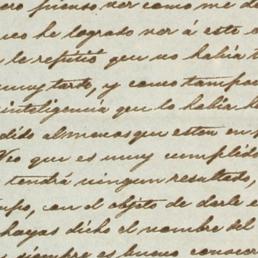 pienso ver como me d
he logrado ver á este
la repitió que no había t
muy tarde, y como tampoc
inteligencia que lo había h
dido al menos que esten en p
Veo que es muy cumplido
tendrá ningun resultado,
po, con el objeto de darle e
hayas dicho el nombre del
siempre es bueno conocer